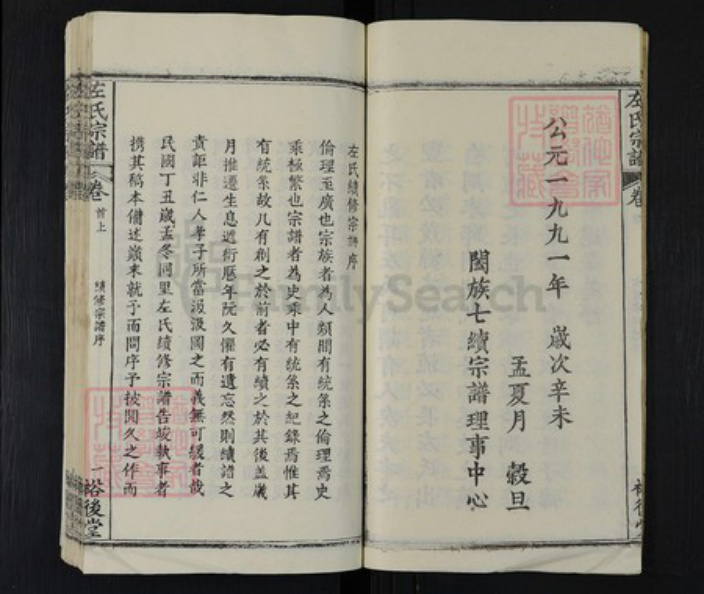 左氏宗譜
卷
公元一九九一年　歲次辛未
孟夏月　穀旦
闔族七續宗譜理事中心
裕後堂
左氏續修宗譜序
倫理至廣也宗族者為人類間有統系之倫理焉史
乘極繁也宗譜者為史乘中有統系之紀錄焉惟其
有統系故凡有創之於前者必有續之於其後蓋歲
月推遷生息遞衍歷年阮久懼有遺忘然則續譜之
責詎非仁人孝子所當汲汲圖之而義無可緩者哉
民國丁丑歲孟冬同里左氏續修宗譜告竣執事者
携其稿本備述巔末就予而問序予披閱久之作而
左氏宗譜
卷
首上
續修宗譜序
一
裕後堂
FamilySearch